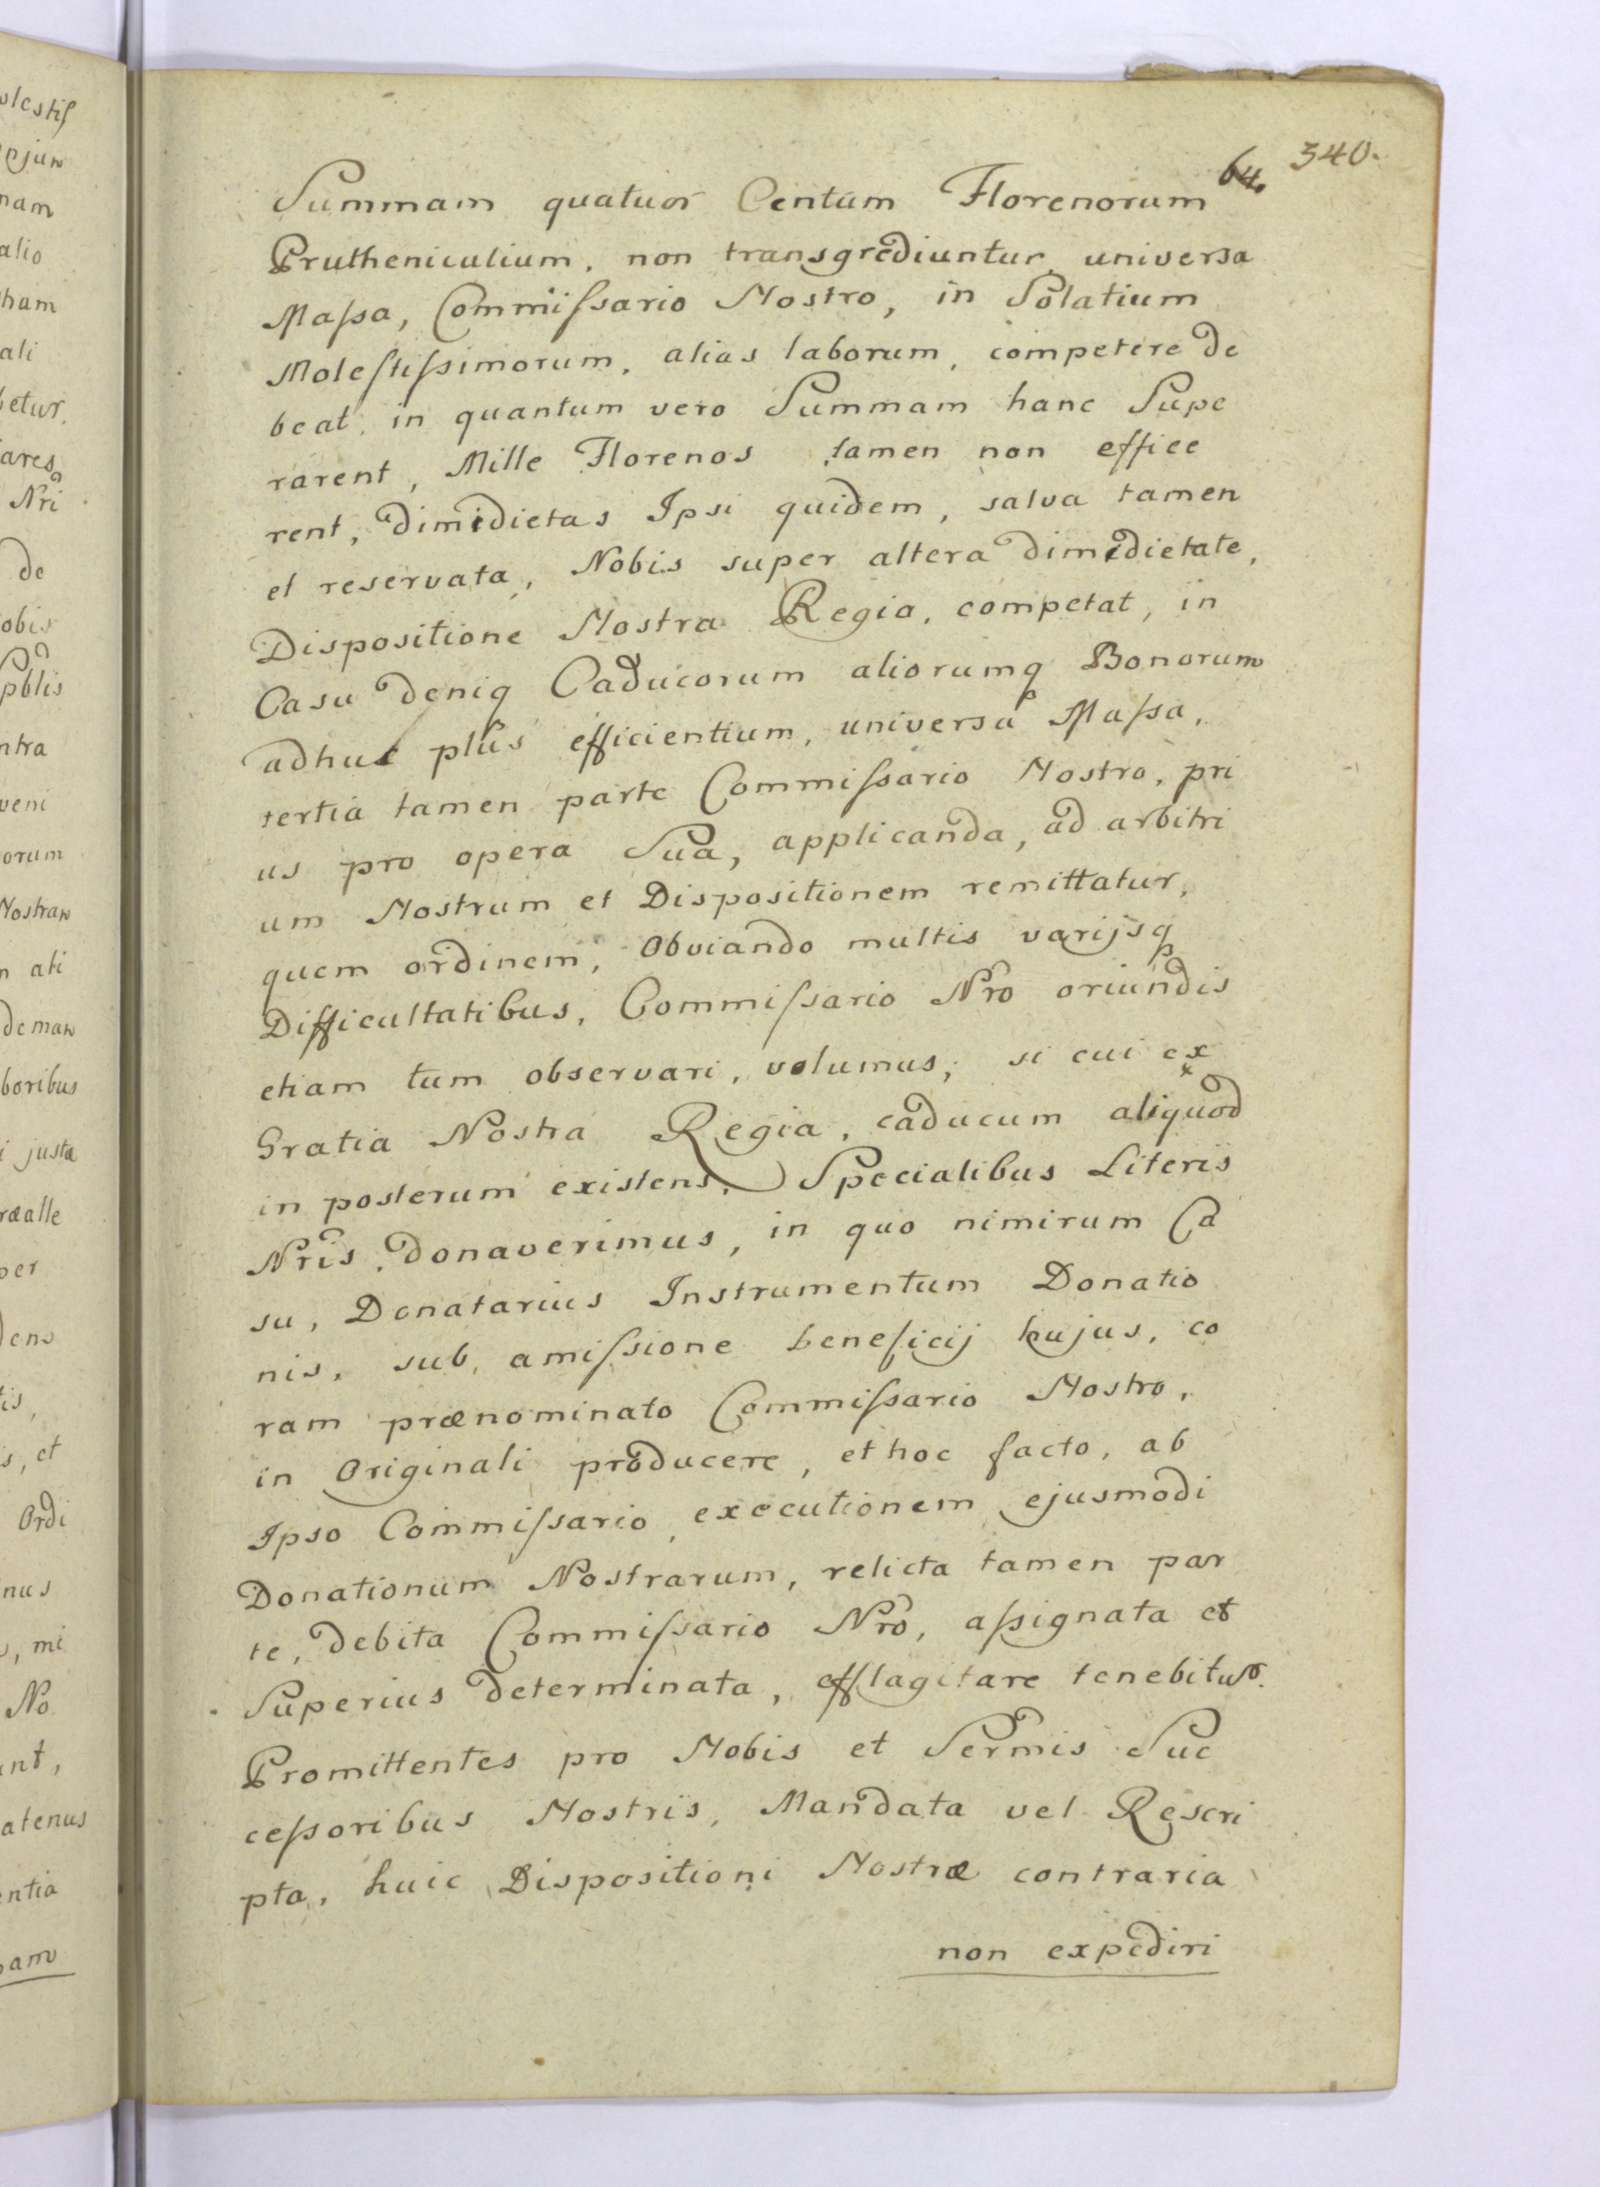 64. 340.
Summam quatuor Centum Florenorum
Prutheniculium, non transgrediuntur, universa
Massa, Commissario Nostro, in Solatium
Molestissimorum, alias laborum, competere de
beat, in quantum vero Summam hanc Supe
rarent, Mille Florenos tamen non effice
rent, dimidietas Ipsi quidem, salva tamen
et reservata, Nobis super altera dimidietate,
Dispositione Nostra Regia, competat, in
Casu deniq Caducorum aliorumq Bonorum
adhuc plus efficientium, universa Massa,
tertia tamen parte Commissario Nostro, pri
us pro opera Sua, applicanda, ad arbitri
um Nostrum et Dispositionem remittatur,
quem ordinem, Obviando multis varijsq
Difficultatibus, Commissario Nro oriundis
etiam tum observari, volumus, si cui ex
Gratia Nostra Regia, caducum aliquod
in posterum existens, Specialibus Literis
Nris, donaverimus, in quo nimirum Ca
su, Donatarius Instrumentum Donatio
nis, sub amissione beneficij hujus, co
ram prænominato Commissario Nostro,
in Originali producere, et hoc facto, ab
Ipso Commissario, executionem ejusmodi
Donationum Nostrarum, relicta tamen par
te, debita Commissario Nro, assignata et
Superius determinata, efflagitare tenebitur.
Promittentes pro Nobis et Sermis Suc
cessoribus Nostris, Mandata vel Rescri
pta, huic Dispositioni Nostræ contraria
non expediri